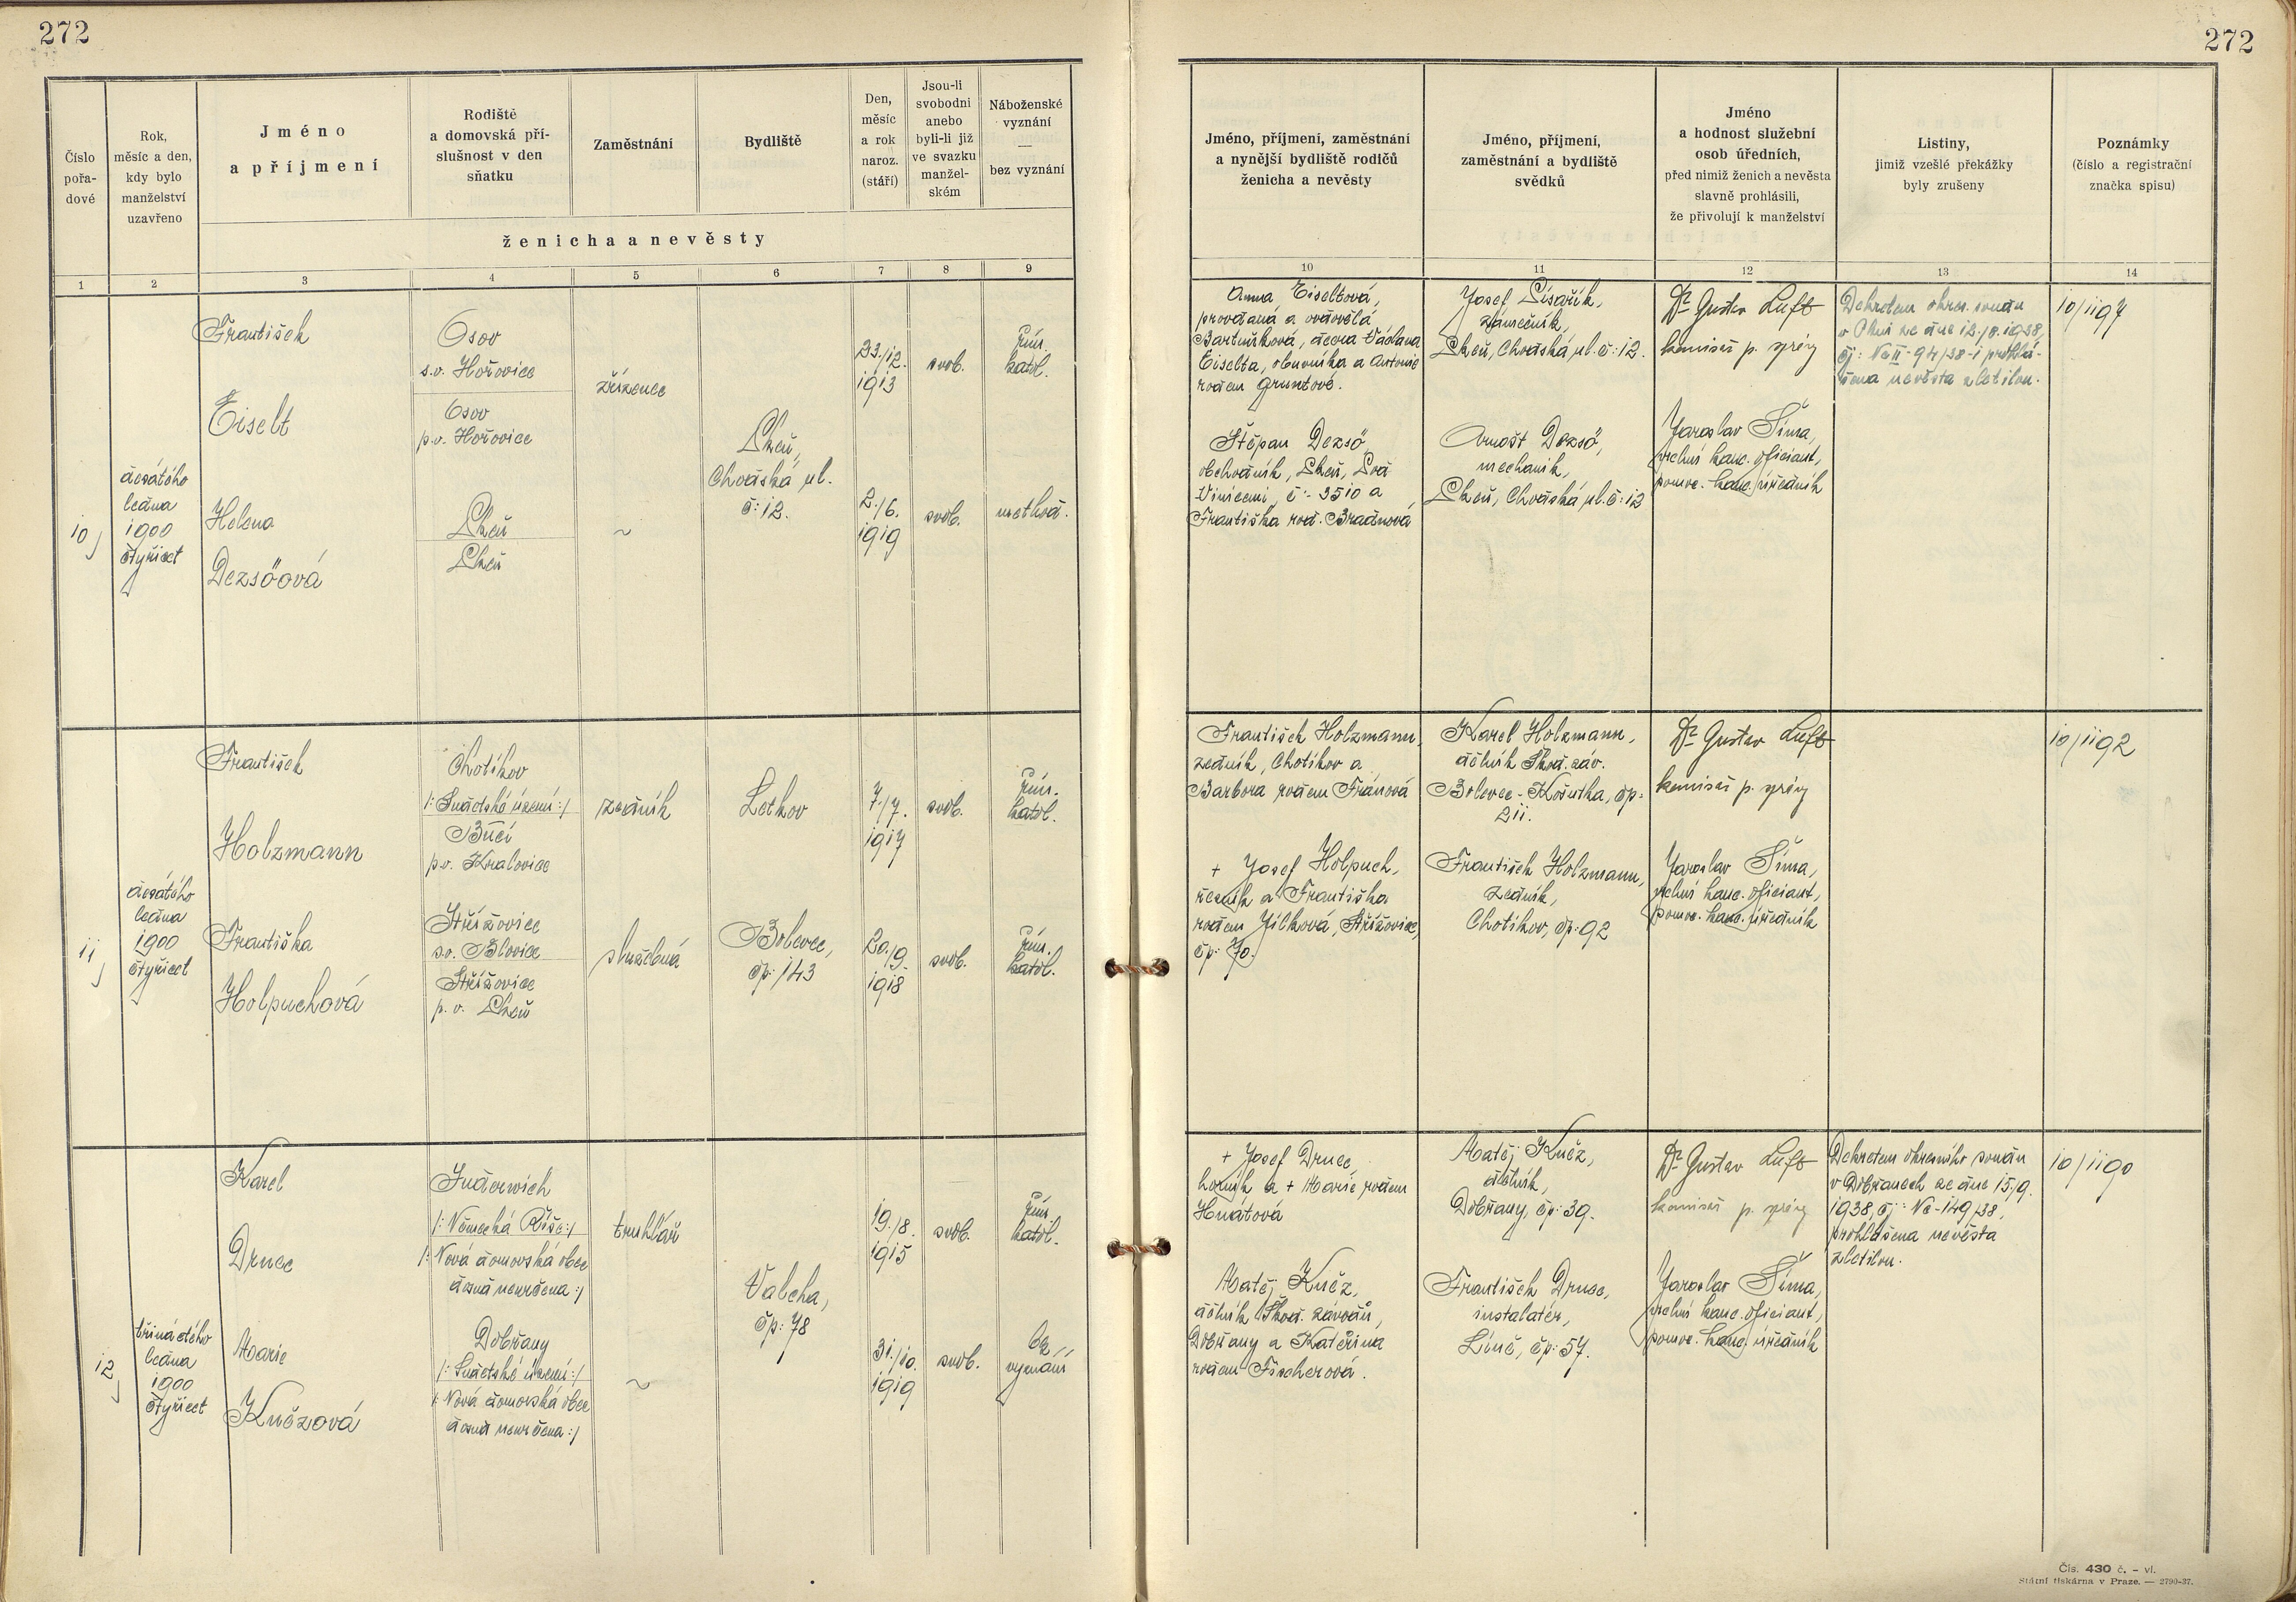 272
272
Číslo
pořa-
dové
Rok,
měsíc a den,
kdy bylo
manželství
uzavřeno
Jméno
a příjmení
Rodiště
a domovská pří-
slušnost v den
sňatku
Zaměstnání
Bydliště
Den,
měsíc
a rok
naroz.
(stáří)
Jsou-li
svobodni
anebo
byli-li již
ve svazku
manžel-
ském
Náboženské
vyznání
—
bez vyznání
ženicha a nevěsty
Jméno, příjmení, zaměstnání
a nynější bydliště rodičů
ženicha a nevěsty
Jméno, příjmení,
zaměstnání a bydliště
svědků
Jméno
a hodnost služební
osob úředních,
před nimiž ženich a nevěsta
slavně prohlásili,
že přivolují k manželství
Listiny,
jimiž vzešlé překážky
byly zrušeny
Poznámky
(číslo a registrační
značka spisu)
1 2 3 4 5 6 7 8 9 10 11 12 13 14
10
desátého
ledna
1900
čtyřicet
František
Eiselt
Osov
s.o. Hořovice
Osov
p.o. Hořovice
zřízenec
Plzeň,
Chodská ul.
č: 12.
23./12.
1913
svob.
řím.
katol.
Helena
Dezsöová
Plzeň
Plzeň
~
2./6.
1919
svob.
method.
Anna Eiseltová,
provdaná a ovdovělá
Bartušková, dcera Václava
Eiselta, obuvníka a Antonie
rodem Gruntové.
Štěpan Dezsö,
obchodník, Plzeň, Pod
Vinicemi, č: 3510 a
Františka rod. Bradnová
Josef Písařík,
zámečník,
Plzeň, Chodská ul. č: 12.
Arnošt Dezsö,
mechanik,
Plzeň, Chodská ul. č: 12
Dr Gustav Luft
komisař p. správy
Jaroslav Šíma,
vrchní kanc. oficiant,
pomoc. kanc. úředník
Dekretem okres. soudu
v Plzni ze dne 12./8. 1938,
čj: Nc II-94/38-1 prohlá-
šena nevěsta zletilou.
10/1197
11
desátého
ledna
1900
čtyřicet
František
Holzmann
Chotíkov
/: Sudetské území :/
Bučí
p.o. Kralovice
zedník
Letkov
7./7.
1917
svob.
řím.
katol.
Františka
Holpuchová
Střížovice
s.o. Blovice
Střížovice
p. o. Plzeň
služebná
Bolevec,
čp: 143
20./9.
1918
svob.
řím.
katol.
František Holzmann,
zedník, Chotíkov a
Barbora rodem Fránová
+ Josef Holpuch,
řezník a Františka
rodem Jílková, Střížovice,
čp: 70.
Karel Holzmann,
dělník Škod. záv.
Bolevec - Košutka, čp:
211.
František Holzmann,
zedník,
Chotíkov, čp: 92
Dr Gustav Luft
komisař p. správy
Jaroslav Šíma,
vrchní kanc. oficiant,
pomoc. kanc. úředník
10/1192
12
třináctého
ledna
1900
čtyřicet
Karel
Druec
Inderwich
/: Německá Říše :/
/: Nová domovská obec
dosud neurčena :/
truhlář
Valcha,
čp: 78
19./8.
1915
svob.
řím.
katol.
Marie
Kučzová
Dobřany
/: Sudetské území :/
/: Nová domovská obec
dosud neurčena :/
~
31./10.
1919
svob.
bez
vyznání
+ Josef Druec,
horník a + Marie rodem
Hnátová
Matěj Kučz,
dělník Škod. závodů,
Dobřany a Kateřina
rodem Fischerová.
Matěj Kučz,
dělník,
Dobřany, čp: 39.
František Druec,
instalatér,
Líně, čp: 57.
Dr Gustav Luft
komisař p. správy
Jaroslav Šíma,
vrchní kanc. oficiant,
pomoc. kanc. úředník
Dekretem okresního soudu
v Dobřanech ze dne 15./9.
1938, čj: Nc-149/38,
prohlášena nevěsta
zletilou.
10/1190
Čís. 430 č. – vl.
Státní tiskárna v Praze. — 2790-37.